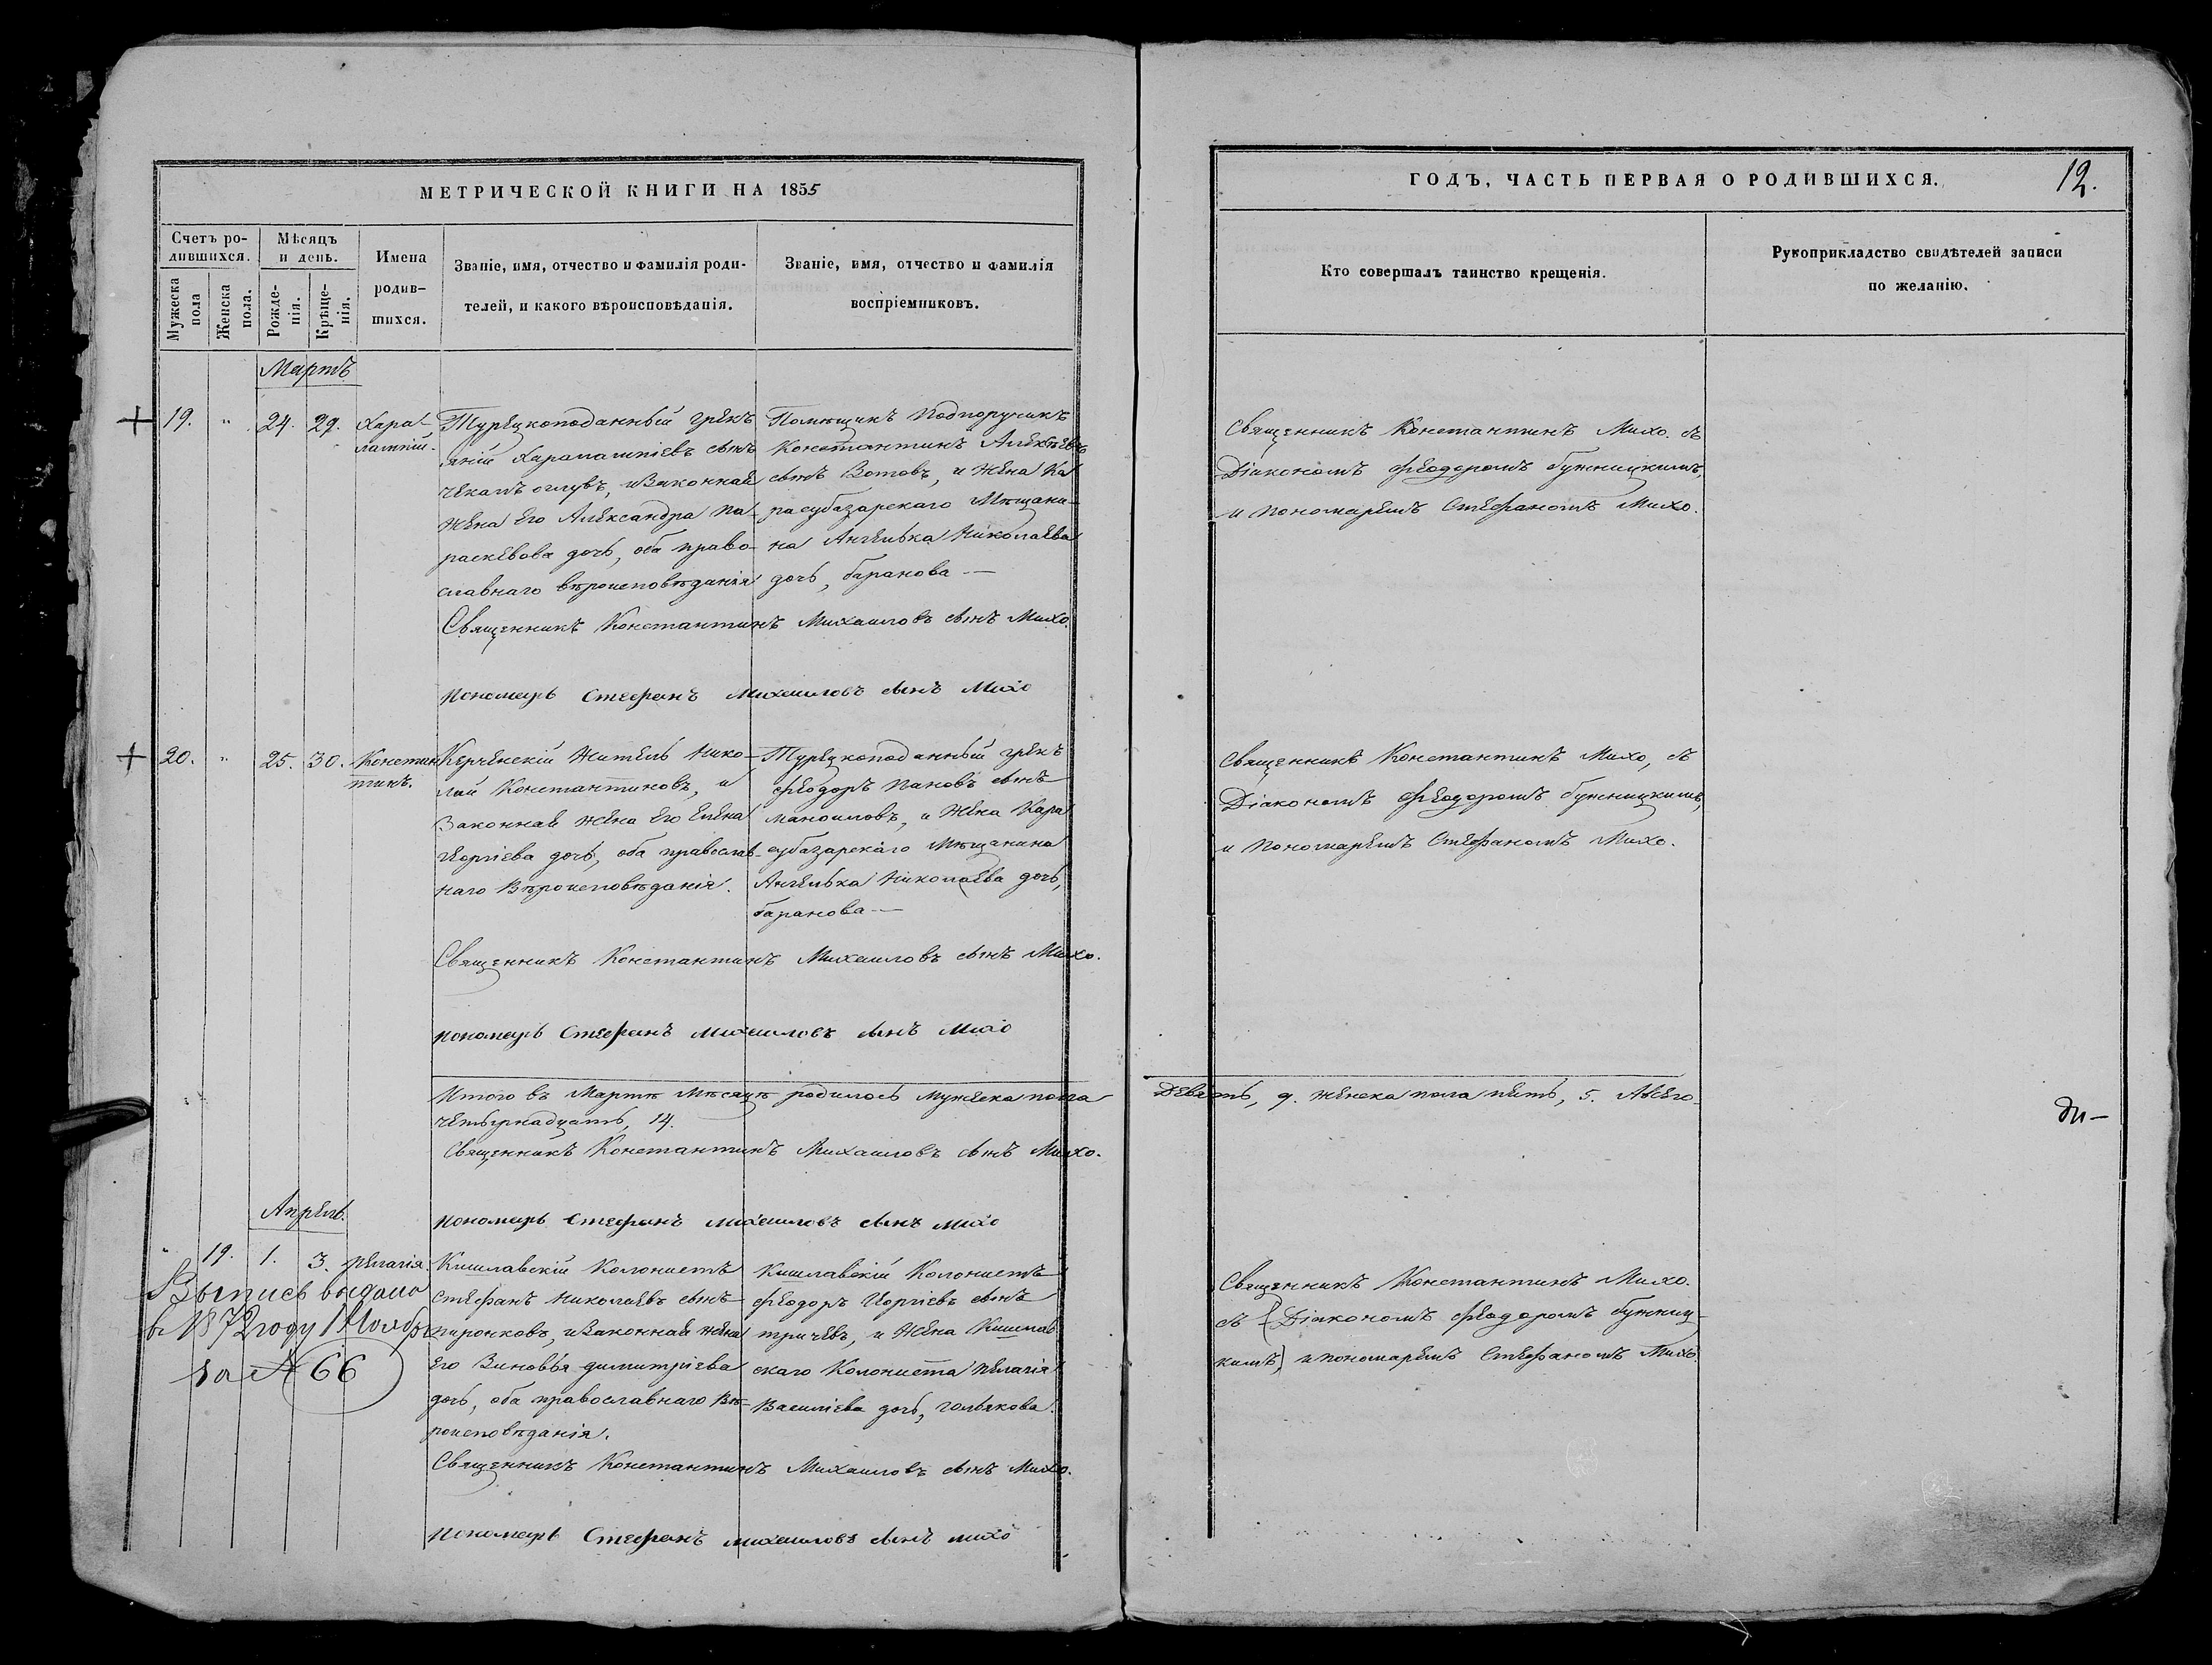 МЕТРИЧЕСКОЙ КНИГИ НА 1855
Счетъ ро-
дившихся.
Мужеска
пола
Женска
пола.
Мѣсяцъ
и день.
Рожде-
нія.
Креще-
нія.
Имена
родив-
шихся.
Званіе, имя, отчество и фамилія роди-
телей, и какого вѣроисповѣданія.
Званіе, имя, отчество и фамилія
воспріемниковъ.
Мартъ
19. " 24. 29. Хара-
лампій.
Турецкоподанный грекъ
Харалампіевъ сынъ
и Законная
жена его Александра Па-
раскевова дочь, оба право-
славнаго вѣроисповѣданія
Помѣщикъ Подпоручикъ
Константинъ Алексѣевъ
сынъ Вотовъ, и жена Ка-
расубазарскаго Мѣщани-
на Ангелька Николаева
дочь, Баранова —
Священникъ Константинъ Михаиловъ сынъ Михо.
Пономарь Стефанъ Михаиловъ сынъ Михо
20. " 25. 30. Констан-
тинъ.
Керченскій Житель Нико-
лай Константиновъ, и
Законная жена его Елена
Георгіева дочь, оба православ-
наго Вѣроисповѣданія.
Турецкоподанный грекъ
Феодоръ Пановъ сынъ
Маноиловъ, и Жена Кара
субазарскаго Мѣщанина
Ангелька Николаева дочь,
Баранова —
Священникъ Константинъ Михаиловъ сынъ Михо.
Пономарь Стефанъ Михаиловъ сынъ Михо
Итого въ Мартѣ Мѣсяцѣ родилось мужеска пола
четырнадцать, 14.
Священникъ Константинъ Михаиловъ сынъ Михо.
Пономарь Стефанъ Михаиловъ сынъ Михо
Апрѣль.
" 19. 1. 3. Пелагія
Выпись выдана
въ 1872 году 1 Ноября
за № 66
Кишлавскій Колонистъ
Стефанъ Николаевъ сынъ
Пиронковъ, и Законная жена
его Зиновья Димитріева
дочь, оба православнаго Вѣ-
роисповѣданія.
Кишлавскій Колонистъ
Феодоръ Георгіевъ сынъ
и Жена Кишлав
скаго Колониста Пелагія
Василіева дочь, Голякова.
Священникъ Константинъ Михаиловъ сынъ Михо.
Пономарь Стефанъ Михаиловъ сынъ Михо
ГОДЪ, ЧАСТЬ ПЕРВАЯ О РОДИВШИХСЯ.
12.
Кто совершалъ таинство крещенія.
Рукоприкладство свидѣтелей записи
по желанію.
Священникъ Константинъ Михо. съ
Діакономъ Феодоромъ Бужницкимъ,
и Пономаремъ Стефаномъ Михо.
Священникъ Константинъ Михо, съ
Діакономъ Феодоромъ Бужницкимъ,
и Пономаремъ Стефаномъ Михо.
Девять, 9. женска пола пять, 5. А всего
Священникъ Константинъ Михо.
съ (Діакономъ Феодоромъ Бужниц-
кимъ,) и пономаремъ Стефаномъ Михо.